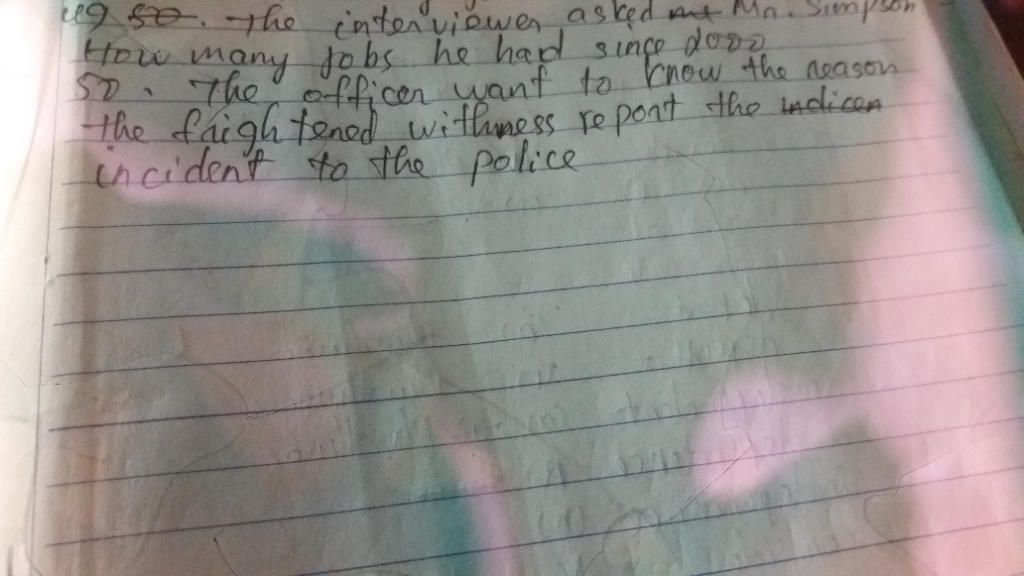 49 50. The interviewer asked Mr. Simpson
How many Jobs he had since 2000
50. The officer want to know the reason
the frightened withness report the indicen
incident to the police